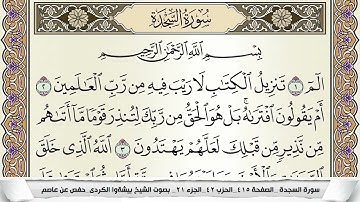 سُورَةُ السَّجْدَةِ
بِسْمِ اللَّهِ الرَّحْمَٰنِ الرَّحِيمِ
الٓمٓ ١ تَنزِيلُ الْكِتَابِ لَا رَيْبَ فِيهِ مِن رَّبِّ الْعَالَمِينَ ٢
أَمْ يَقُولُونَ افْتَرَاهُ ۚ بَلْ هُوَ الْحَقُّ مِن رَّبِّكَ لِتُنذِرَ قَوْمًا مَّا أَتَاهُم
مِّن نَّذِيرٍ مِّن قَبْلِكَ لَعَلَّهُمْ يَهْتَدُونَ ٣ اللَّهُ الَّذِي خَلَقَ
سورة السجدة _ الصفحة ٤١٥ _ الحزب ٤٢ _ الجزء ٢١ _ بصوت الشيخ بيشةوا الكردى _ حفص عن عاصم